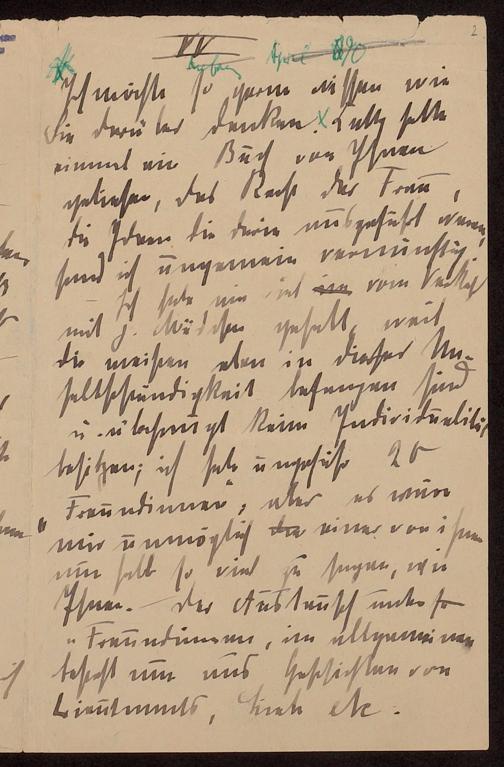 2
IV
Anfang April 1890
Ich möchte so gern wissen wie
Sie darüber denken. x Lutz hatte
einmal ein Buch von Ihnen
geliehen, das Recht der Frau,
die Ideen die darin ausgeführt waren,
fand ich ungemein vernünftig.
Ich habe nie viel vom Verkehr
mit j. Mädchen gehabt, weil
die meisten eben in dieser Un-
selbstständigkeit befangen sind
u. überhaupt keine Individualität
besitzen; ich habe ungefähr 26
"Freundinnen", aber es wäre
mir unmöglich einer von ihnen
nur halb so viel zu sagen, wie
Ihnen. – Der Austausch unter so
"Freundinnen, im allgemeinen
besteht nur aus Geschichten von
Lieutenants, etc.